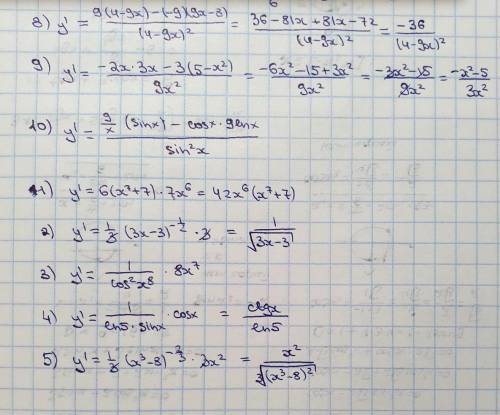 8) y' = (9(4-9x)-(-9)(9x-8))/(4-9x)² = (36-81x+81x-72)/(4-9x)² = -36/(4-9x)²
9) y' = (-2x·3x-3(5-x²))/9x² = (-6x²-15+3x²)/9x² = (-3x²-15)/9x² = (-x²-5)/3x²
10) y' = (9/x (sinx) - cosx·9lnx)/sin²x
1) y' = 6(x⁷+7)·7x⁶ = 42x⁶(x⁷+7)
2) y' = 1/2 (3x-3)^(-1/2)·2 = 1/√(3x-3)
3) y' = 1/cos²x⁸ · 8x⁷
4) y' = 1/(ln5·sinx) · cosx = ctgx/ln5
5) y' = 1/3 (x³-8)^(-2/3)·3x² = x²/∛((x³-8)²)